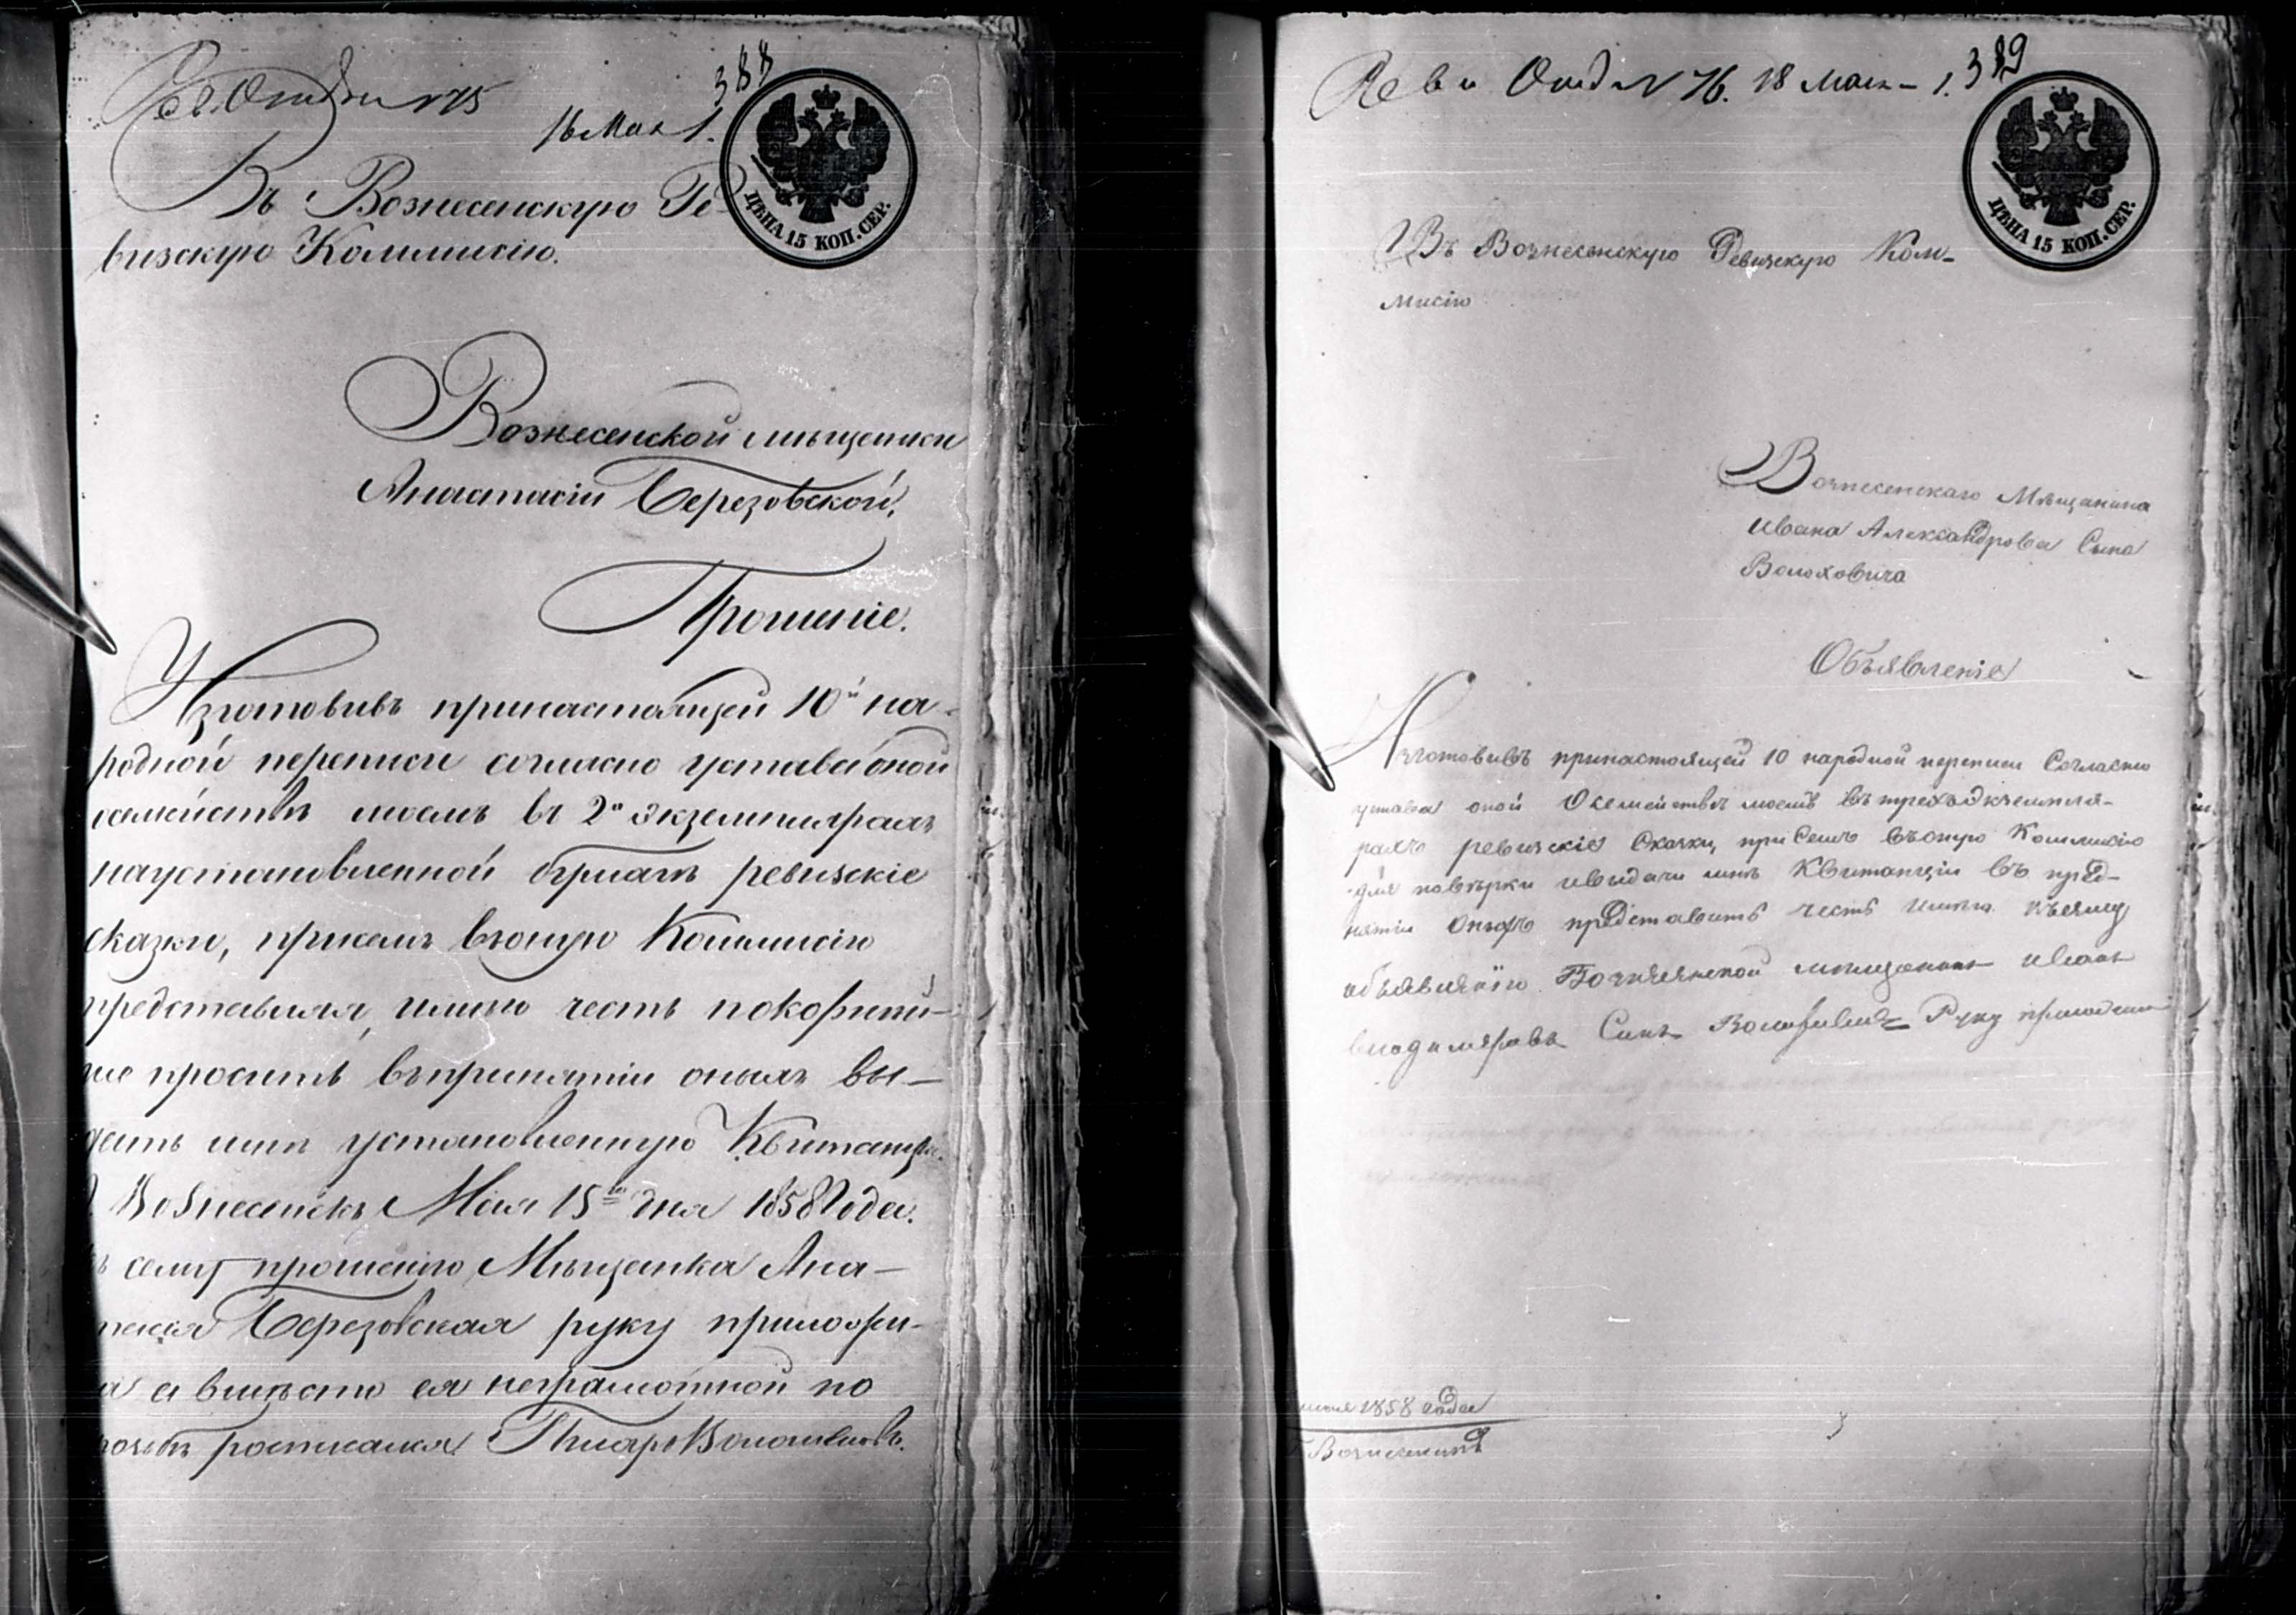 388
16 Мая 1.
ЦѢНА 15 КОП. СЕР.
Въ Вознесенскую Ре-
визскую Коммисію.
Вознесенской мѣщанки
Анастасіи Березовской,
Прошеніе.
Изготовивъ принастоящей 10й на-
родной переписи согласно устава оной
семействѣ моемъ въ 2х экземплярахъ
наустановленной бумагѣ ревизскіе
сказки, присемъ вонуюо Коммисію
представляя, имѣю честь покорнѣй-
ше просить впринятіи оныхъ вы-
дать мнѣ установленную Квитанцію.
Вознесенскъ Мая 15го дня 1858 Года.
сему прошенію Мѣщанка Ана-
Березовская руку приложи-
а вмѣсто ея неграмотной по
росписался Писарь
389
18 Мая 1.
ЦѢНА 15 КОП. СЕР.
Въ Вознесенскую Ревизскую Ком-
мисію
Вознесенскаго Мѣщанина
Ивана Александрова Сына
Волоховича
Объявленіе
Изготовивъ принастоящей 10 народной переписи Согласно
устава оной О семействѣ моемъ въ трехъ экземпля-
рахъ ревизскіе Сказки, при Семъ въ оную Коммисію
для повѣрки ивыдачи мнѣ Квитанціи въ прид-
нятіи Оныхъ представить честь имѣю. Къ сему
объявленію мещанинъ иванъ
Сынъ Руку приложилъ
1858 года